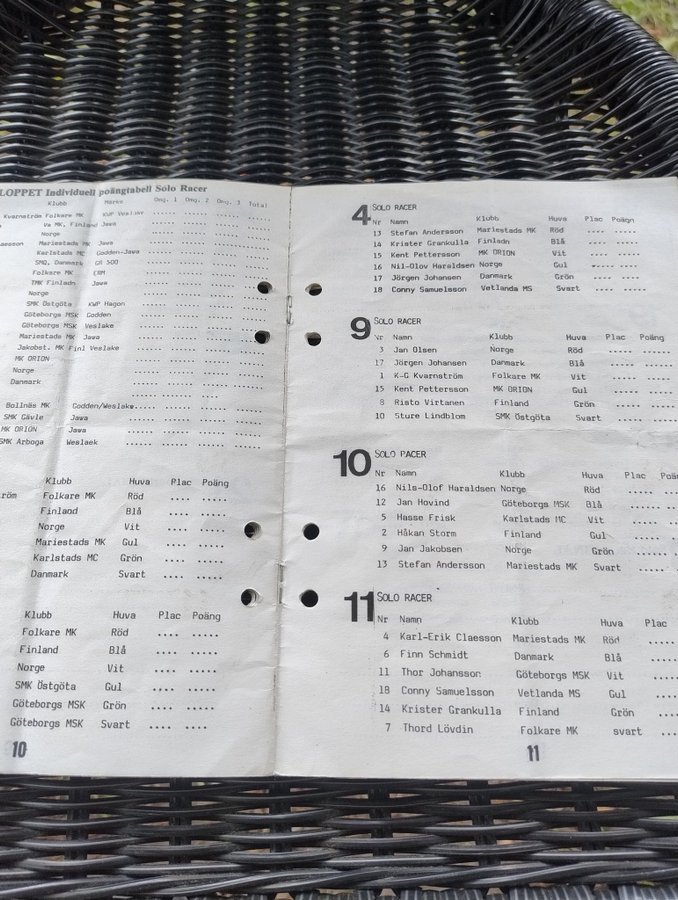 LOPPET Individuell poängtabell Solo Racer
Klubb Märke Omg. 1 Omg. 2 Omg. 3 Total
Kvarnström Folkare MK KWP Weslake
Va MK, Finland Jawa
Norge
Claesson Mariestads MK Jawa
Karlstads MC Godden-Jawa
SMQ, Danmark GM 500
Folkare MK ERM
TMK Finladn Jawa
Norge
SMK Östgöta KWP Hagon
Göteborgs MSK Godden
Göteborgs MSK Veslake
Mariestads MK Jawa
Jakobst. MK Finl Veslake
MK ORION
Norge
Danmark
Bollnäs MK Godden/Weslake
SMK Gävle Jawa
MK ORION Jawa
SMK Arboga Weslaek
Klubb Huva Plac Poäng
ström Folkare MK Röd .... .....
Finland Blå .... .....
Norge Vit .... .....
Mariestads MK Gul .... .....
Karlstads MC Grön .... .....
Danmark Svart .... .....
Klubb Huva Plac Poäng
Folkare MK Röd .... .....
Finland Blå .... .....
Norge Vit .... .....
SMK Östgöta Gul .... .....
Göteborgs MSK Grön .... .....
Göteborgs MSK Svart .... .....
10
4 SOLO RACER
Nr Namn Klubb Huva Plac Poäng
13 Stefan Andersson Mariestads MK Röd .... .....
14 Krister Grankulla Finladn Blå .... .....
15 Kent Pettersson MK ORION Vit .... .....
16 Nil-Olov Haraldsen Norge Gul .... .....
17 Jörgen Johansen Danmark Grön .... .....
18 Conny Samuelsson Vetlanda MS Svart .... .....
9 SOLO RACER
Nr Namn Klubb Huva Plac Poäng
3 Jan Olsen Norge Röd .... .....
17 Jörgen Johansen Danmark Blå .... .....
1 K-G Kvarnström Folkare MK Vit .... .....
15 Kent Pettersson MK ORION Gul .... .....
8 Risto Virtanen Finland Grön .... .....
10 Sture Lindblom SMK Östgöta Svart .... .....
10 SOLO RACER
Nr Namn Klubb Huva Plac Poän
16 Nils-Olof Haraldsen Norge Röd .....
12 Jan Hovind Göteborgs MSK Blå .....
5 Hasse Frisk Karlstads MC Vit .....
2 Håkan Storm Finland Gul .....
9 Jan Jakobsen Norge Grön .....
13 Stefan Andersson Mariestads MK Svart .....
11 SOLO RACER
Nr Namn Klubb Huva Plac
4 Karl-Erik Claesson Mariestads MK Röd .....
6 Finn Schmidt Danmark Blå .....
11 Thor Johansson Göteborgs MSK Vit .....
18 Conny Samuelsson Vetlanda MS Gul .....
14 Krister Grankulla Finland Grön ....
7 Thord Lövdin Folkare MK svart ....
11